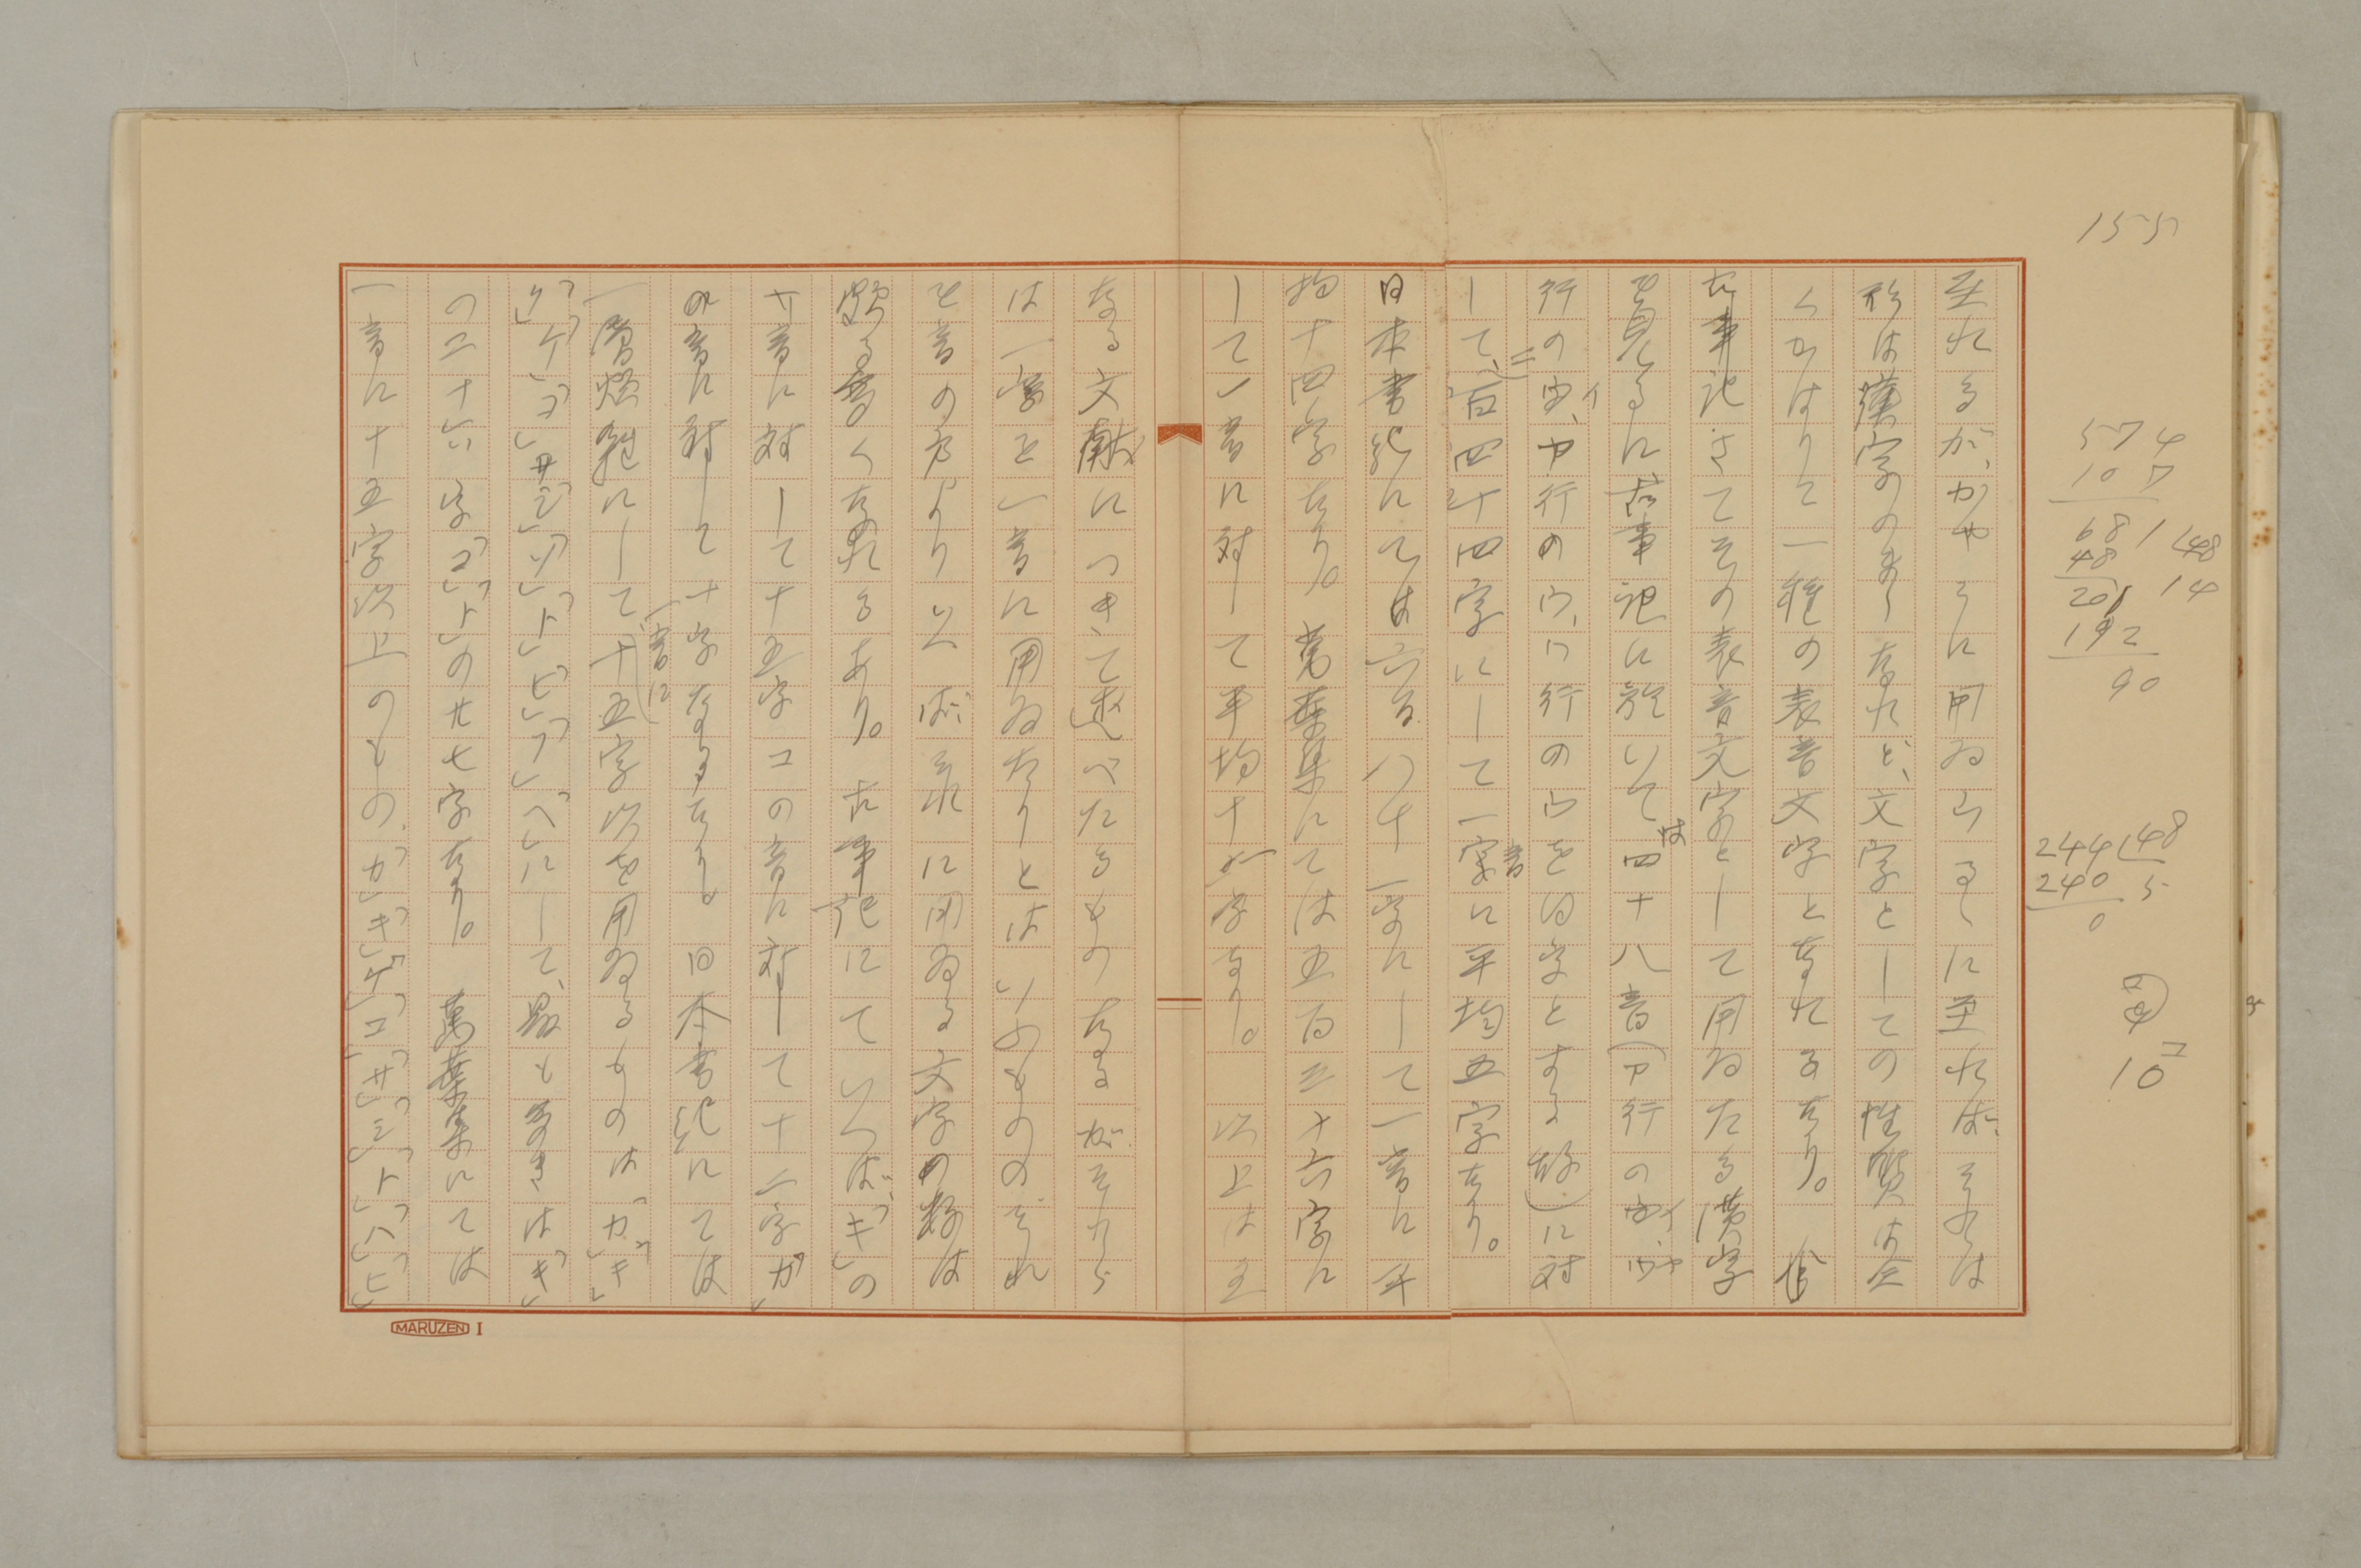 155
574
107
681
48
201
192
90
48
14
244
48
240
5
0
10
至れるが、かやうに用ゐらるゝに至れば、それらは
形は漢字のまゝなれど、文字としての性質は全
くかはりて一種の表音文字となれるなり。
古事記さてその表音文字として用ゐたる漢字
を見るに古事記に於いては四十八音(ア行の
行の、ヤ行の、ワ行のウを同字とする故)に対
して、二百四十四字にして一音に平均五字なり。
日本書紀にては六百八十一字にして一音に平
均十四字なり。萬葉集にては五百三十六字に
して一音に対して平均十一字なり。以上は主
なる文献につきて述べたるものなるが、それら
は一字を一音に用ゐたりとはいふものゝそれ
を音の方よりいへば、それに用ゐる文字の数は
頗る多くなれるあり。古事記にていへば、「キ」の
音に対して十五字コの音に対して十二字「カ」
の音に対して十字なるなり。日本書紀にては
一層煩雑にして、一音に十五字以上を用ゐるものは「カ」「キ」
「ク」「ケ」「コ」「サ」「シ」「ソ」「ト」「ヒ」「フ」「ヘ」にして、最も多きは「キ」
の三十六字「コ」「ト」の廿七字なり。萬葉集にては
一音に十五字以上のもの、「カ」「キ」「ケ」「コ」「サ」「シ」「ト」「ハ」「ヒ」
MARUZEN I